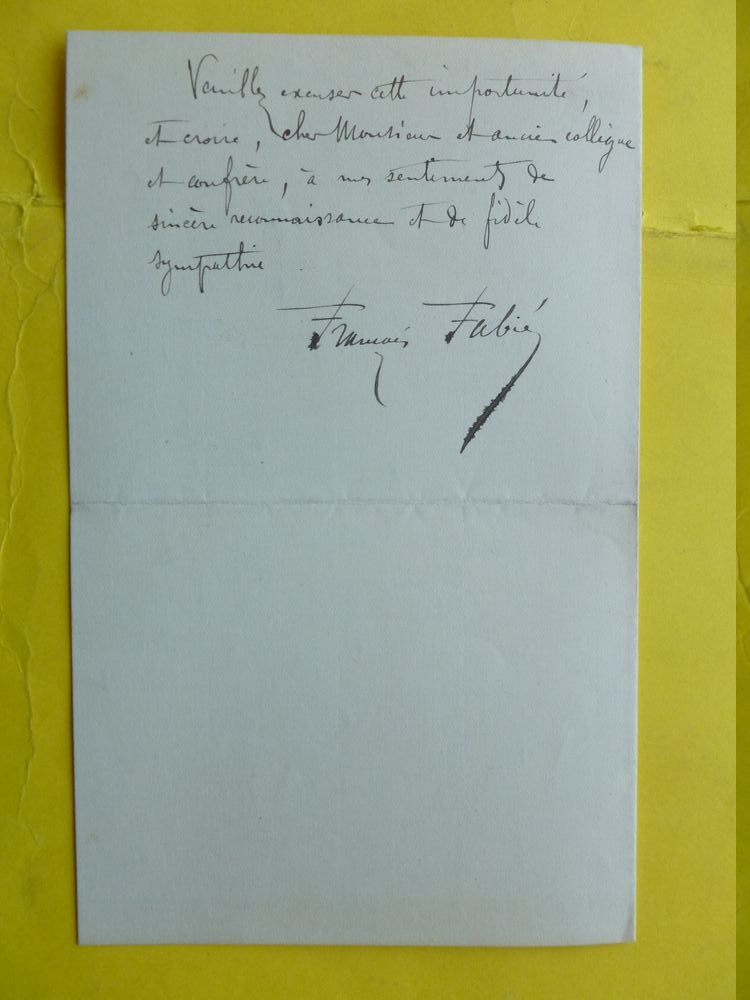 Veuillez excuser cette importunité,
et croire, cher Monsieur et ancien collègue
et confrère, à mes sentiments de
sincère reconnaissance et de fidèle
sympathie.
François Fabié